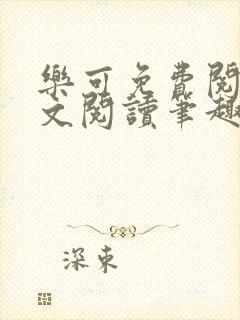 樂可免費閱
文閱讀筆趣
深東